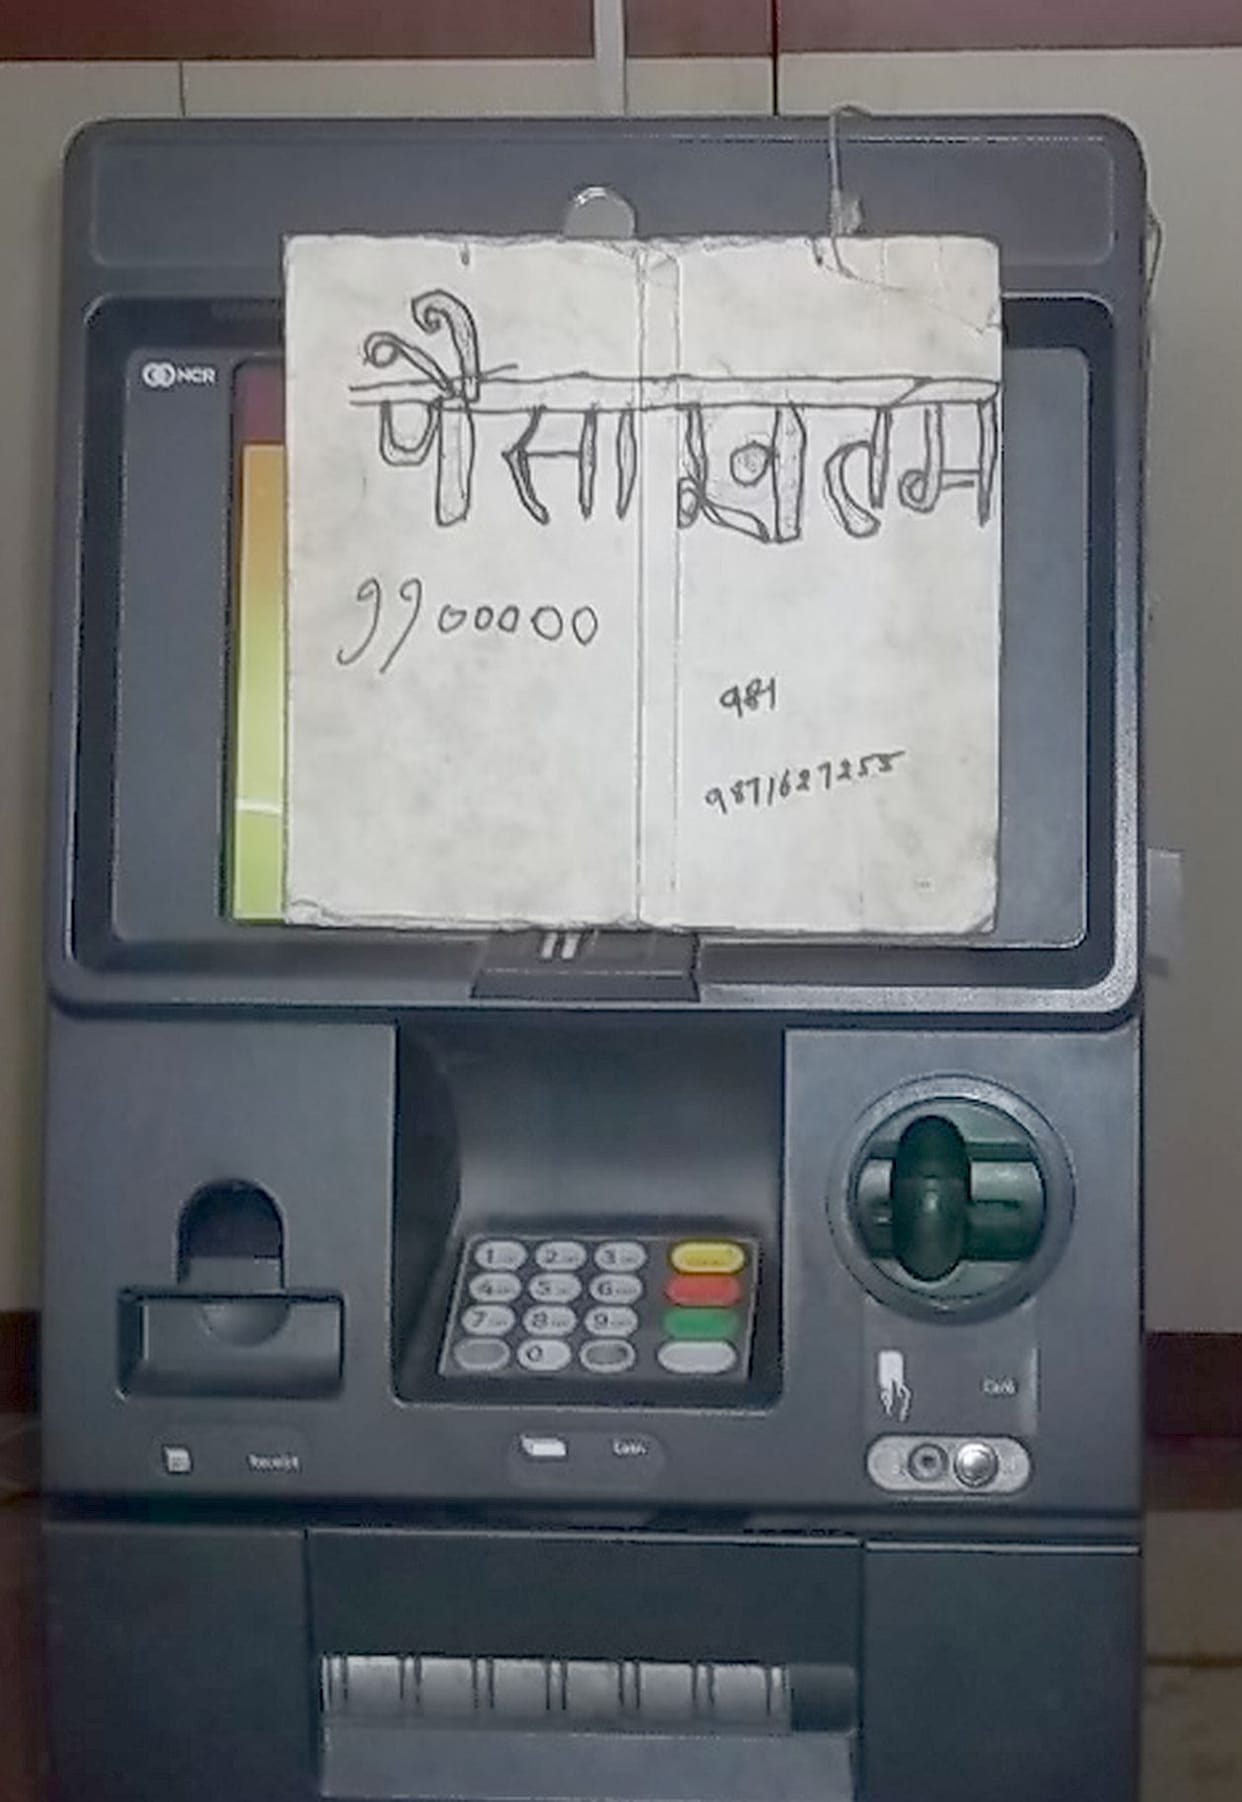 NCR
पैसा खतम
9900000
981
9871627255
1 2 3
4 5 6
7 8 9
0
Card
Receipt
Cash